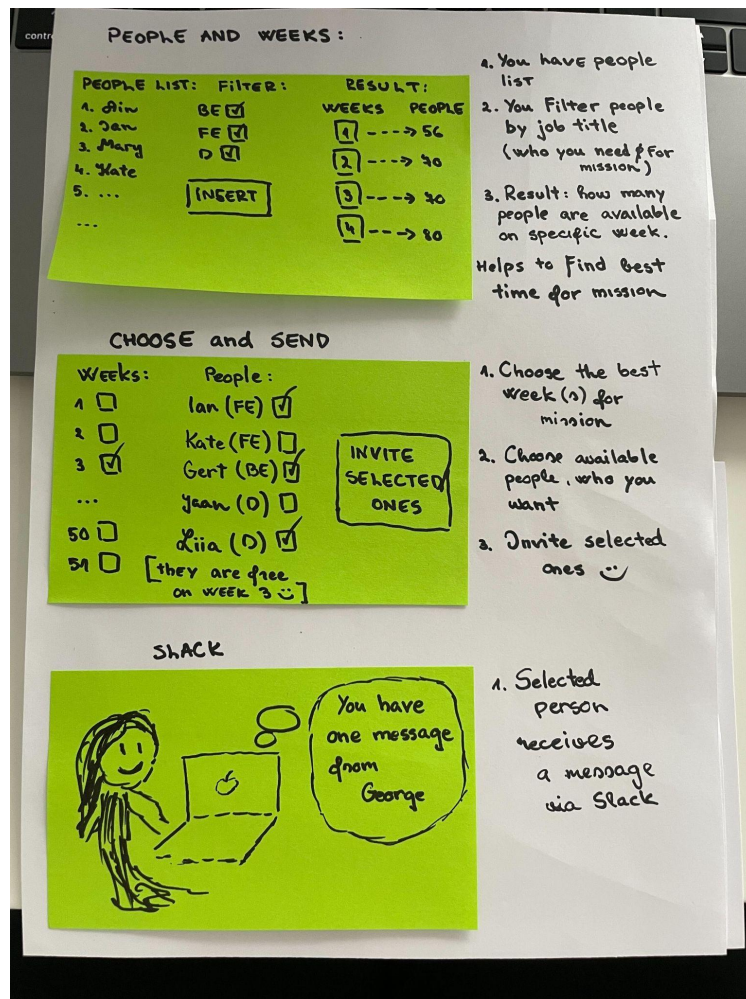 contr
PEOPLE AND WEEKS:
PEOPLE LIST: FILTER: RESULT:
1. Ain BE WEEKS PEOPLE
2. Jan FE 1 ----> 56
3. Mary D 2 ---> 70
4. Kate 3 ---> 70
5. ... INSERT 4 ---> 80
...
1. You have people
list
2. You Filter people
by job title
(who you need for
mission)
3. Result: how many
people are available
on specific week.
Helps to Find best
time for mission
CHOOSE and SEND
Weeks: People:
1 Ian (FE)
2 Kate (FE)
3 Gert (BE)
... Jaan (D)
50 Liia (D)
51 [they are free
on WEEK 3 :)]
INVITE
SELECTED
ONES
1. Choose the best
week(s) for
mission
2. Choose available
people, who you
want
3. Invite selected
ones :)
SLACK
You have
one message
from
George
1. Selected
person
receives
a message
via Slack